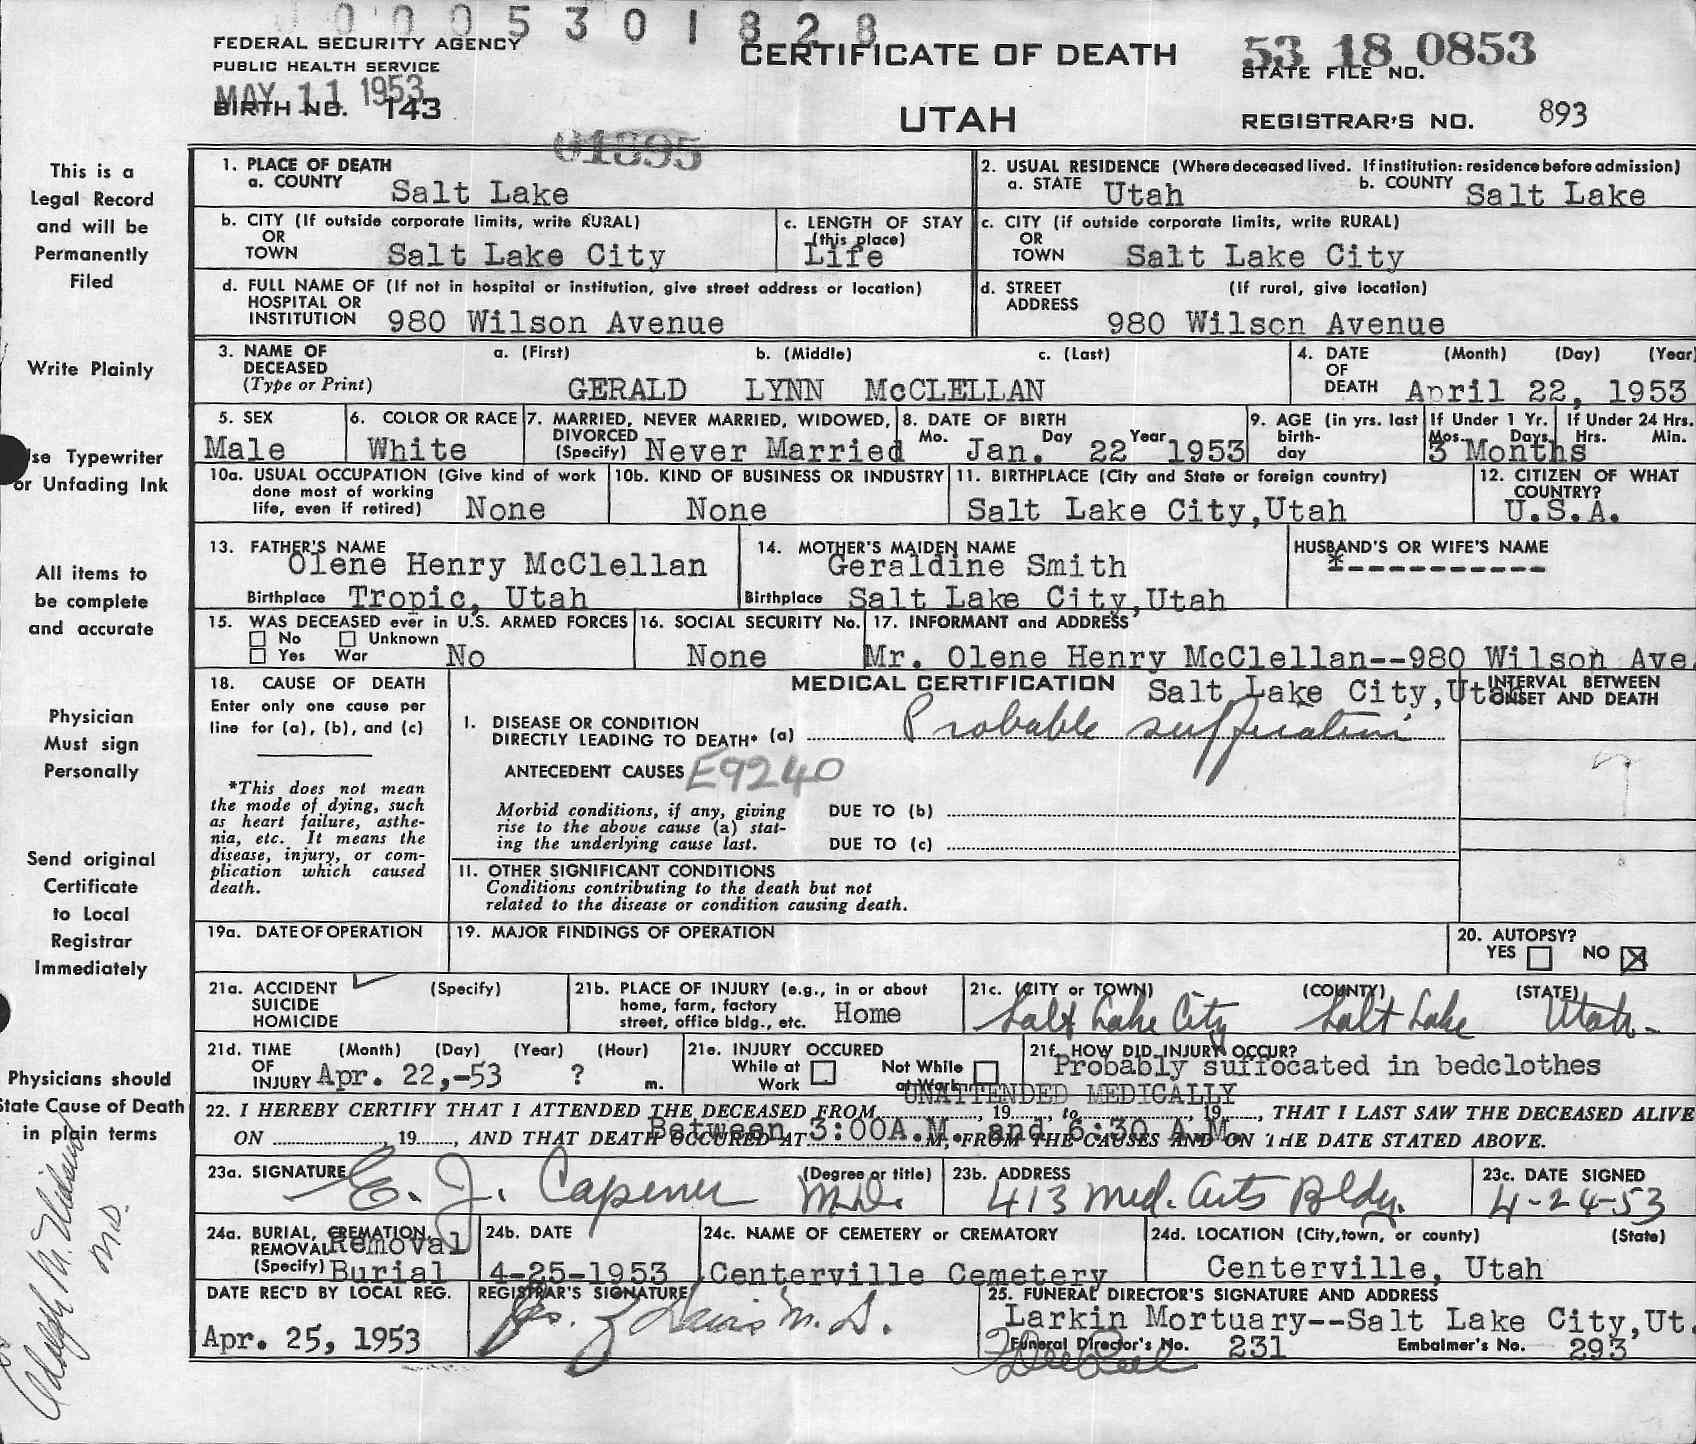 0005301828
FEDERAL SECURITY AGENCY
PUBLIC HEALTH SERVICE
MAY 11 1953
BIRTH NO. 143
CERTIFICATE OF DEATH
UTAH
53 18 0853
STATE FILE NO.
REGISTRAR'S NO. 893
01395
This is a
Legal Record
and will be
Permanently
Filed
Write Plainly
se Typewriter
or Unfading Ink
All items to
be complete
and accurate
Physician
Must sign
Personally
Send original
Certificate
to Local
Registrar
Immediately
Physicians should
State Cause of Death
in plain terms
1. PLACE OF DEATH
a. COUNTY Salt Lake
2. USUAL RESIDENCE (Where deceased lived. If institution: residence before admission)
a. STATE Utah b. COUNTY Salt Lake
b. CITY (If outside corporate limits, write RURAL)
OR
TOWN Salt Lake City
c. LENGTH OF STAY
(this place)
Life
c. CITY (if outside corporate limits, write RURAL)
OR
TOWN Salt Lake City
d. FULL NAME OF (If not in hospital or institution, give street address or location)
HOSPITAL OR
INSTITUTION 980 Wilson Avenue
d. STREET (If rural, give location)
ADDRESS
980 Wilson Avenue
3. NAME OF a. (First) b. (Middle) c. (Last)
DECEASED
(Type or Print) GERALD LYNN McCLELLAN
4. DATE (Month) (Day) (Year
OF
DEATH April 22, 1953
5. SEX
Male
6. COLOR OR RACE
White
7. MARRIED, NEVER MARRIED, WIDOWED,
DIVORCED
(Specify) Never Married
8. DATE OF BIRTH
Mo. Day Year
Jan. 22 1953
9. AGE (in yrs. last
birth-
day
If Under 1 Yr.
Mos. Days
If Under 24 Hrs.
Hrs. Min.
3 Months
10a. USUAL OCCUPATION (Give kind of work
done most of working
life, even if retired) None
10b. KIND OF BUSINESS OR INDUSTRY
None
11. BIRTHPLACE (City and State or foreign country)
Salt Lake City,Utah
12. CITIZEN OF WHAT
COUNTRY?
U.S.A.
13. FATHER'S NAME
Olene Henry McClellan
Birthplace Tropic, Utah
14. MOTHER'S MAIDEN NAME
Geraldine Smith
Birthplace Salt Lake City,Utah
HUSBAND'S OR WIFE'S NAME
*-----------
15. WAS DECEASED ever in U.S. ARMED FORCES
No Unknown
Yes War No
16. SOCIAL SECURITY No.
None
17. INFORMANT and ADDRESS
Mr. Olene Henry McClellan--980 Wilson Ave
Salt Lake City,Utah
18. CAUSE OF DEATH
Enter only one cause per
line for (a), (b), and (c)
*This does not mean
the mode of dying, such
as heart failure, asthe-
nia, etc. It means the
disease, injury, or com-
plication which caused
death.
MEDICAL CERTIFICATION
INTERVAL BETWEEN
ONSET AND DEATH
I. DISEASE OR CONDITION
DIRECTLY LEADING TO DEATH* (a) Probable suffocation
ANTECEDENT CAUSES E9240
Morbid conditions, if any, giving
rise to the above cause (a) stat-
ing the underlying cause last.
DUE TO (b)
DUE TO (c)
11. OTHER SIGNIFICANT CONDITIONS
Conditions contributing to the death but not
related to the disease or condition causing death.
19a. DATE OF OPERATION
19. MAJOR FINDINGS OF OPERATION
20. AUTOPSY?
YES NO X
21a. ACCIDENT (Specify)
SUICIDE
HOMICIDE
21b. PLACE OF INJURY (e.g., in or about
home, farm, factory
street, office bldg., etc. Home
21c. (CITY or TOWN) (COUNTY) (STATE)
Salt Lake City Salt Lake Utah
21d. TIME (Month) (Day) (Year) (Hour)
OF
INJURY Apr. 22,-53 ? m.
21e. INJURY OCCURED
While at Not While
Work at Work
21f. HOW DID INJURY OCCUR?
Probably suffocated in bedclothes
UNATTENDED MEDICALLY
22. I HEREBY CERTIFY THAT I ATTENDED THE DECEASED FROM, 19, to, 19, THAT I LAST SAW THE DECEASED ALIVE
ON, 19, AND THAT DEATH OCCURED AT M., FROM THE CAUSES AND ON THE DATE STATED ABOVE.
Between 3:00A.M. and 6:30 A.M.
23a. SIGNATURE (Degree or title)
E. J. Capener M.D.
23b. ADDRESS
413 Med. Arts Bldg.
23c. DATE SIGNED
4-24-53
24a. BURIAL, CREMATION,
REMOVAL Removal
(Specify) Burial
24b. DATE
4-25-1953
24c. NAME OF CEMETERY OR CREMATORY
Centerville Cemetery
24d. LOCATION (City, town, or county) (State)
Centerville, Utah
DATE REC'D BY LOCAL REG.
Apr. 25, 1953
REGISTRAR'S SIGNATURE
M.D.
25. FUNERAL DIRECTOR'S SIGNATURE AND ADDRESS
Larkin Mortuary--Salt Lake City,Ut.
Funeral Director's No. 231 Embalmer's No. 293
M.D.